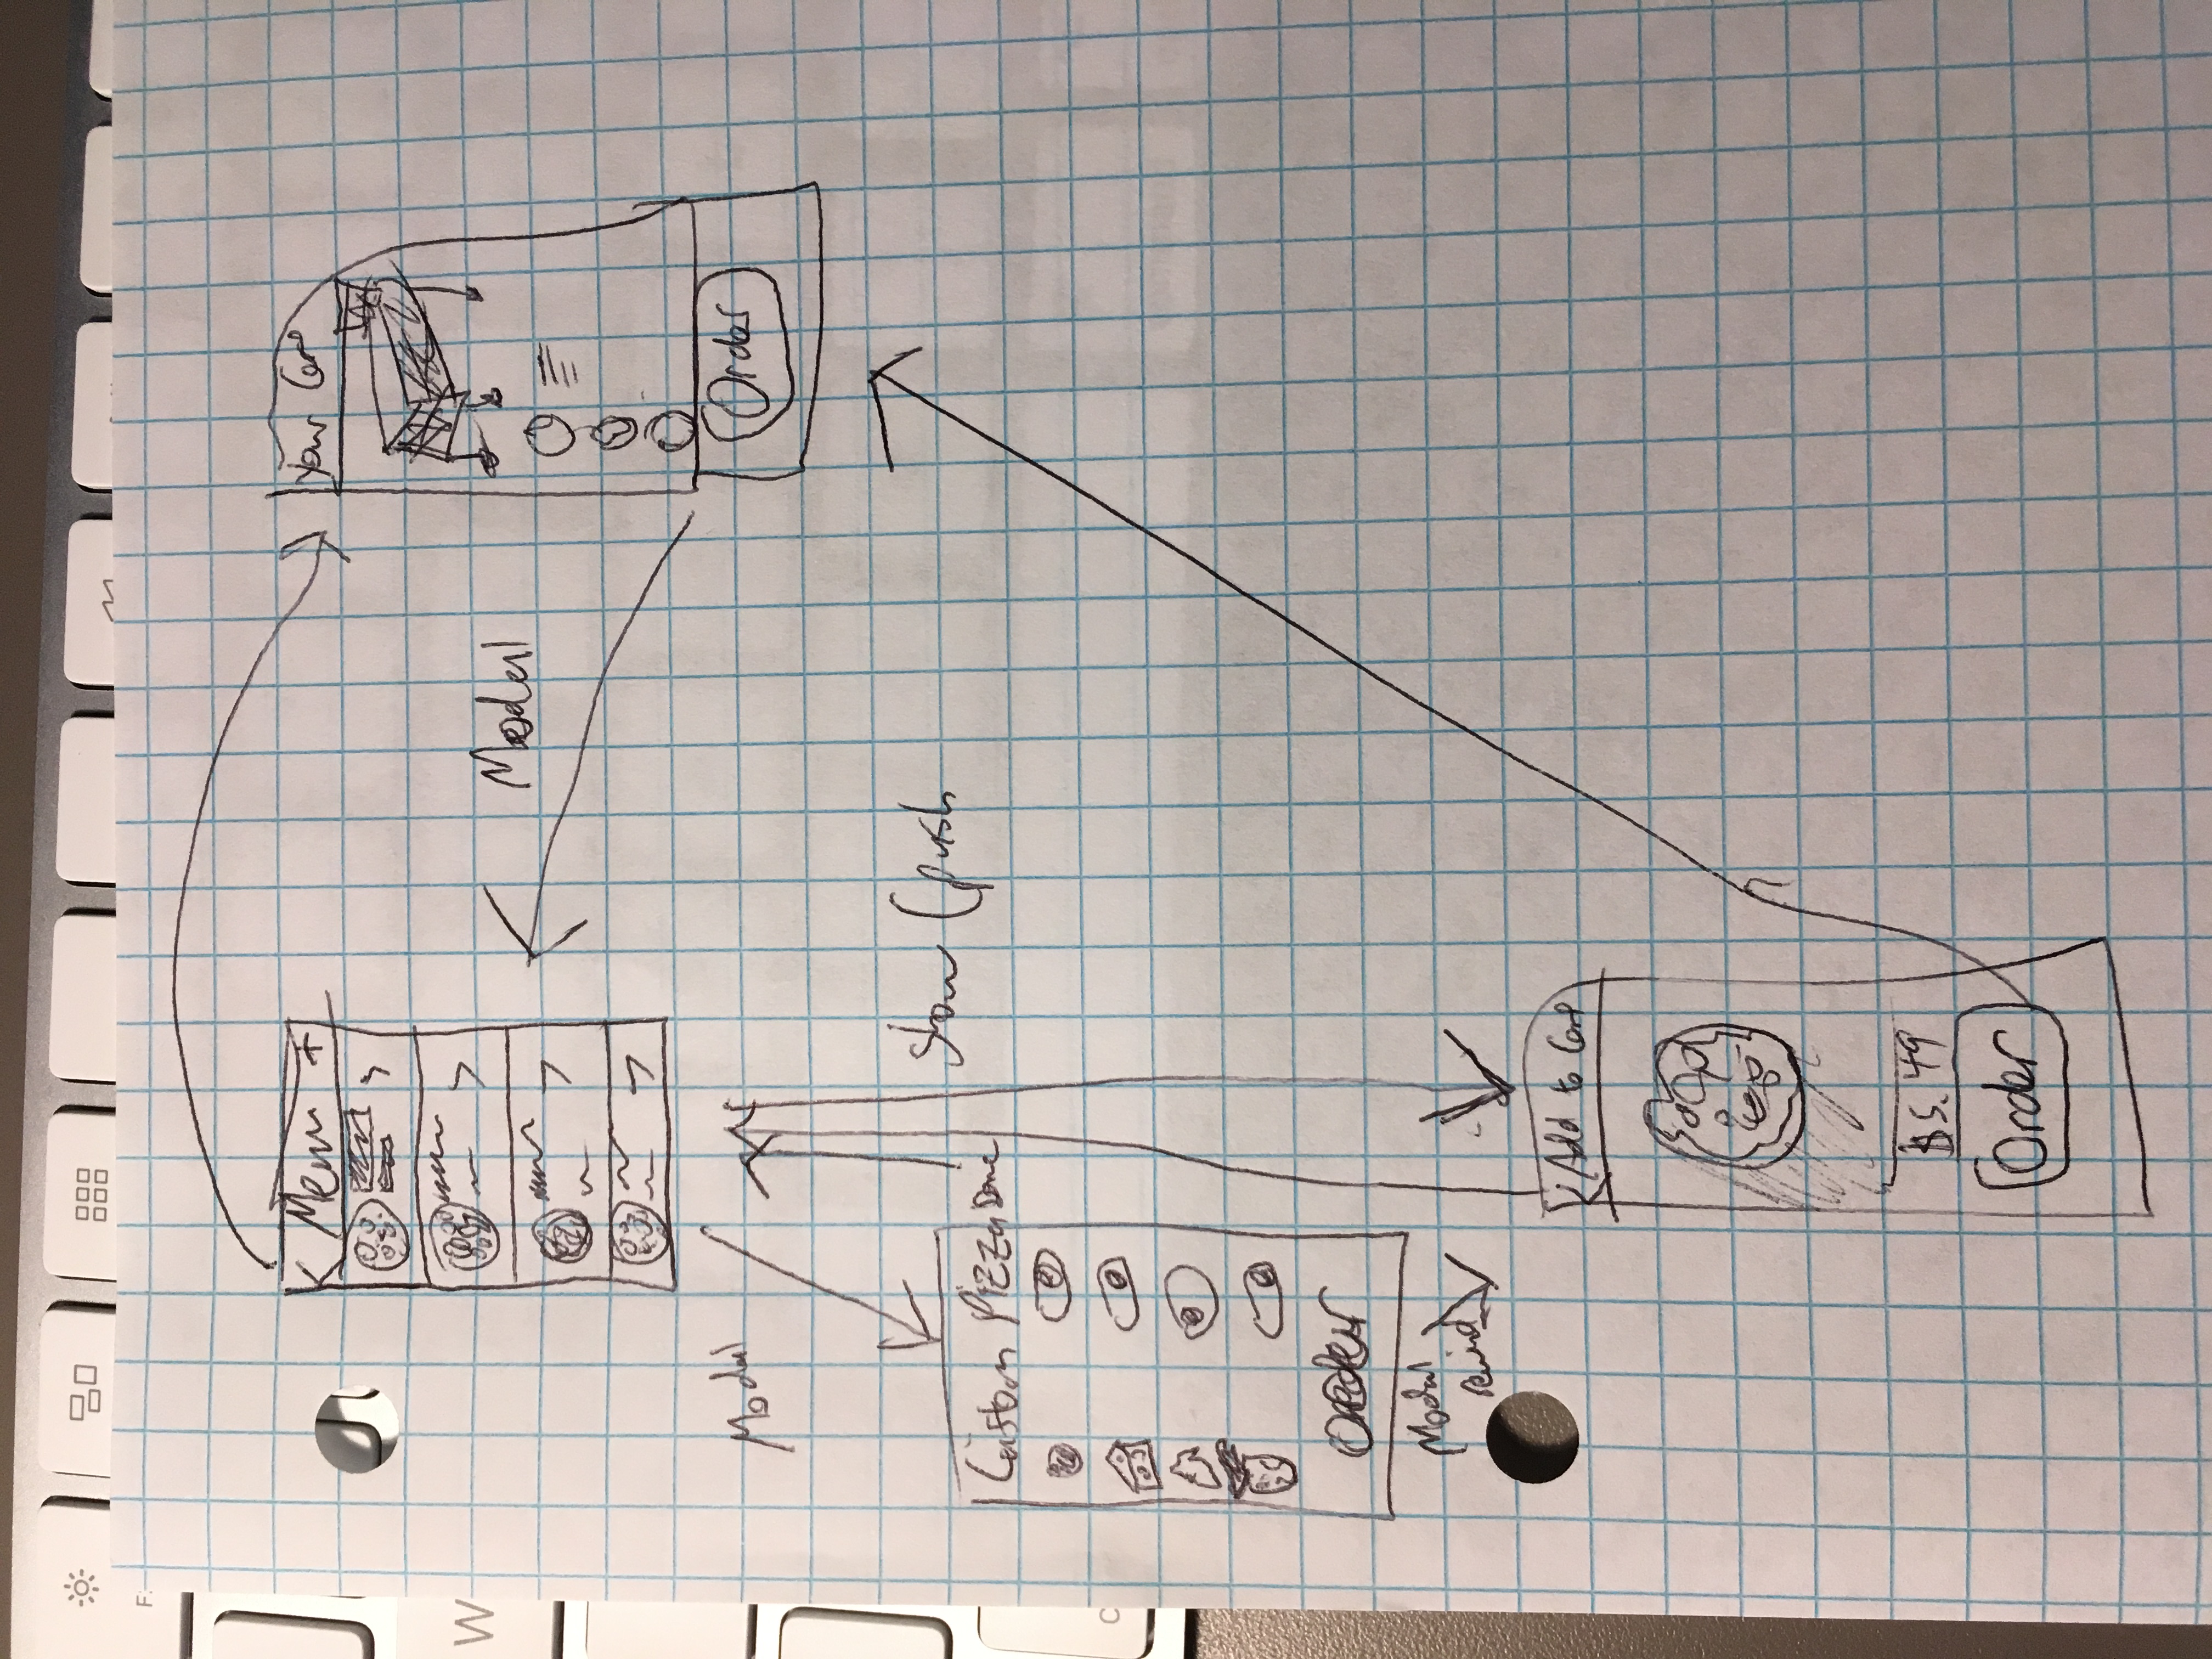 Menu +
Your Cart
Modal
Order
Modal
Show (push
Custom Pizza Done
Order
Modal
Add to Cart
$5.49
Order
W